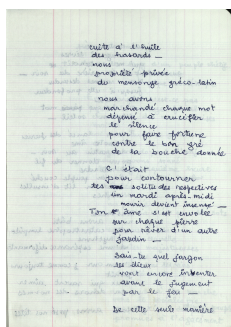 cuite à l'huile
des hasards —
nous
propriété privée
du mensonge gréco-latin
nous avons
marchandé chaque mot
dépensé à crucifier
le silence
pour faire fortune
contre le bon gré
de la bouche donnée
C'était
pour contourner
les solitudes respectives
un mardi après-midi
mourir devient insensé —
Ton âme s'est envolée
sur chaque pierre
pour rêver d'un autre
jardin —
Sais-tu quel jargon
les dieux
vont encore inventer
avant le jugement
par le feu —
De cette seule manière